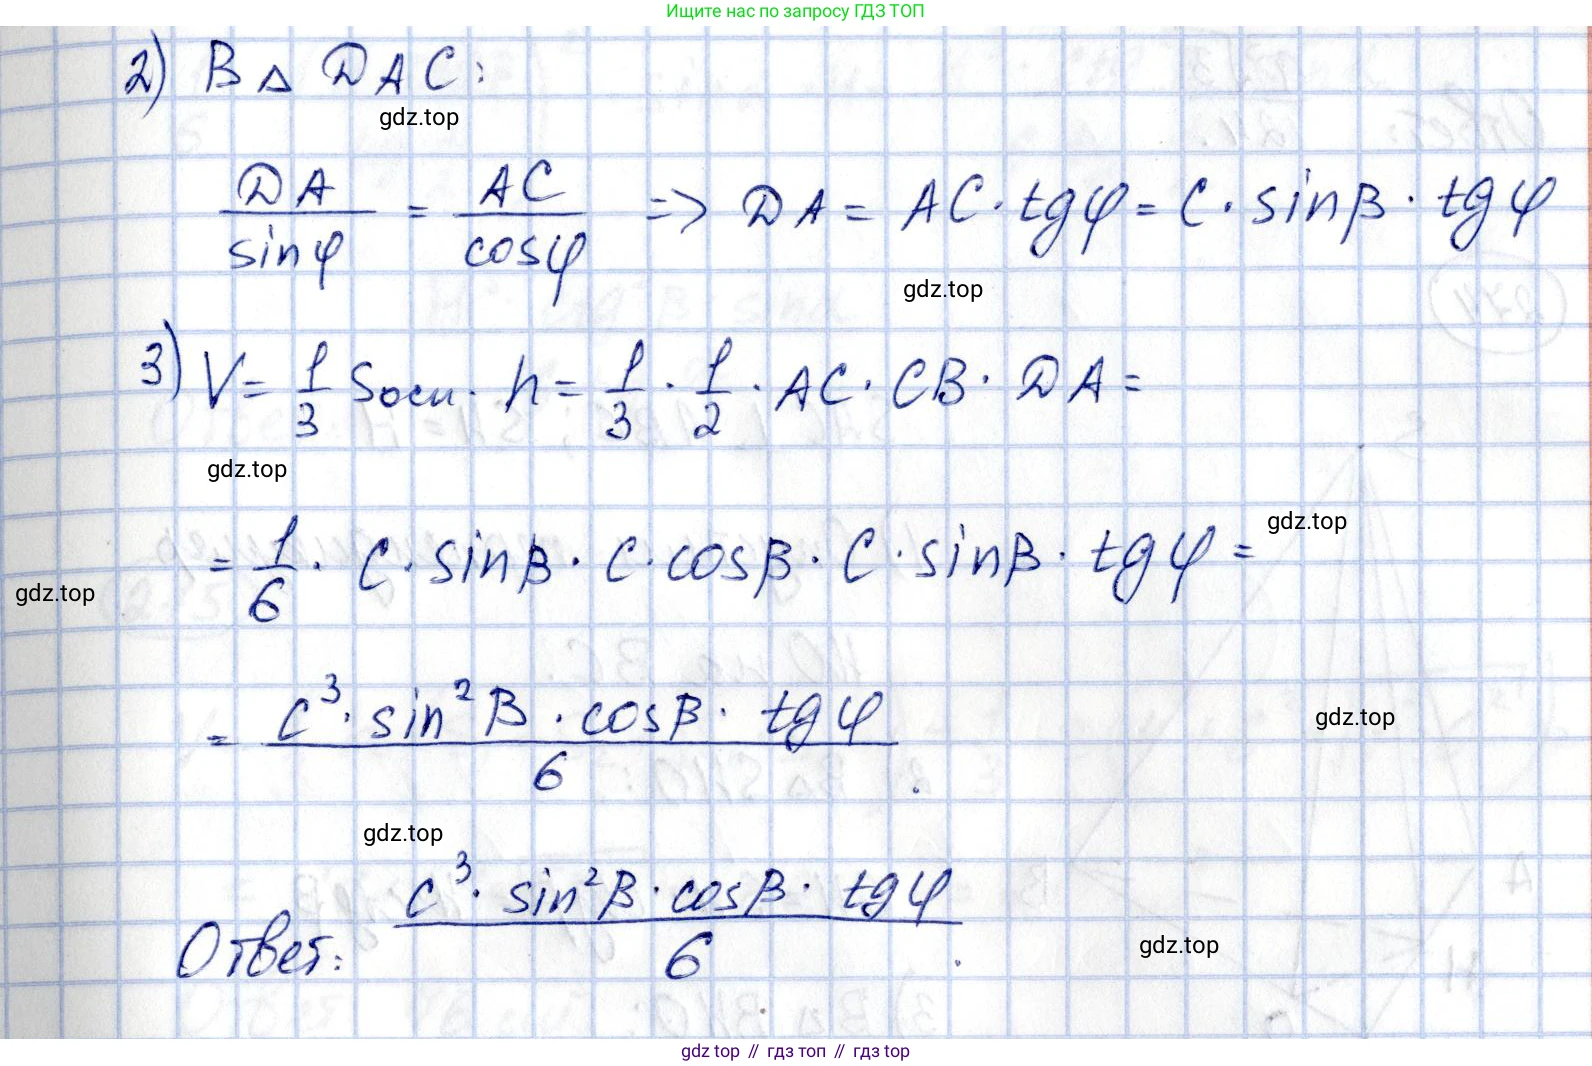 Ищите нас по запросу ГДЗ ТОП
2) В △ DAC:
gdz.top
DA/sinφ = AC/cosφ => DA = AC · tgφ = c · sinβ · tgφ
gdz.top
3) V = 1/3 Sосн · h = 1/3 · 1/2 · AC · CB · DA =
gdz.top
= 1/6 · c · sinβ · c · cosβ · c · sinβ · tgφ =
gdz.top
gdz.top
= c³ · sin²β · cosβ · tgφ / 6 .
gdz.top
gdz.top
Ответ: c³ · sin²β · cosβ · tgφ / 6 .
gdz.top
gdz.top // гдз топ // гдз.top